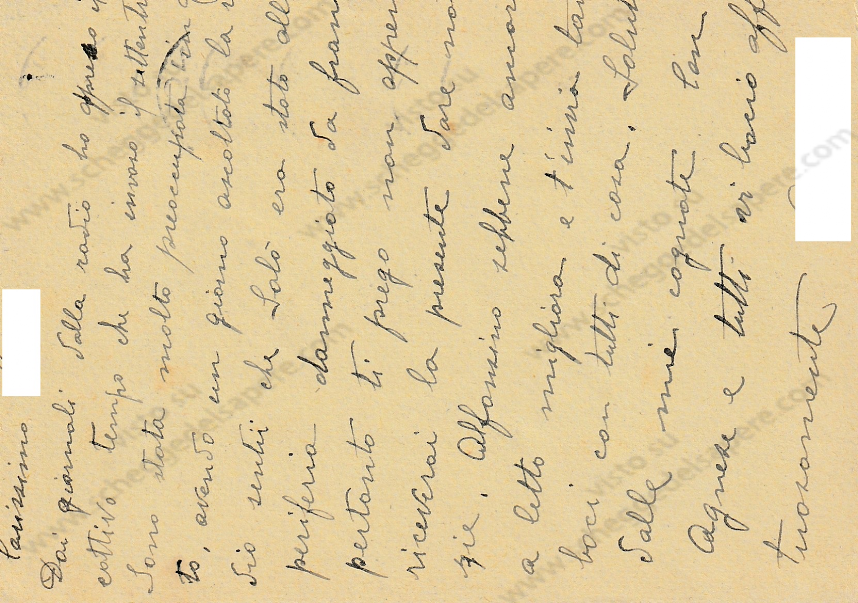 Carissimo
Dai giornali e dalla radio ho appreso il
cattivo tempo che ha invaso il settentri
Sono stata molto preoccupata
to, avendo un giorno ascoltato la
dio sentii che Salò era stato all
periferia danneggiato da fran
pertanto ti prego non appen
riceverai la presente dare no
zie. Alfonsino sebbene ancor
a letto migliora e t'invia tan
baci con tutti di casa. Salut
dalle mie cognate. Con
Agnese e tutti vi bacio aff
tuosamente
www.scheggedelsapere.com
visto su